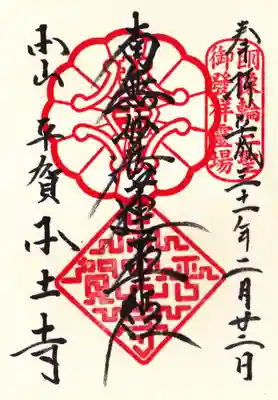 奉拝 平成二十一年二月廿二日
御發祥霊場
南無妙法蓮華経
本山 平賀 本土寺